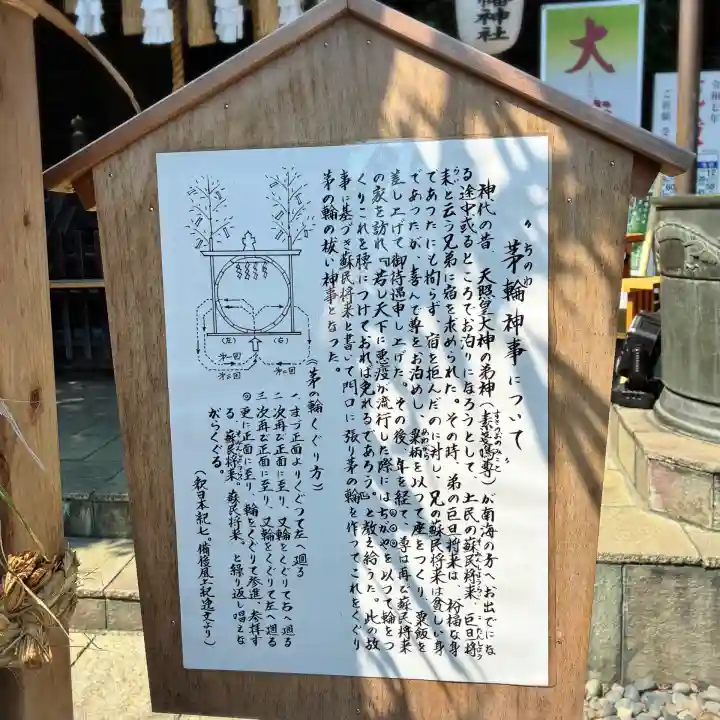 幡神社
大
令和七年
ご祈願受
〝茅輪神事について〟
ちのわ
神代の昔 天照皇大神の弟神(素盞嗚尊)が南海の方へお出でにな
すさのおのみこと
る途中或るところでお泊りになろうとして、土民の蘇民将来、巨旦将
来と云う兄弟に宿を求められた。その時、弟の巨旦将来は、裕福な身
であつたにも拘らず、宿を拒んだのに対し、兄の蘇民将来は貧しい身
であつたが、喜んで尊をお泊めし、粟柄を以つて座をつくり、粟飯を
差し上げて御待遇申し上げた。その後、年を経て、尊は再び蘇民将来
の家を訪れ『若し天下に悪疫が流行した際にはちがやを以つて輪をつ
くりこれを腰につけておれば免れるであろう。』と教え給うた。此の故
事に基づき蘇民将来と書いて門口に張り茅の輪を作つてこれをくぐり
茅の輪の祓い神事となつた。
(茅の輪くぐり方)
一、まづ正面よりくぐつて左へ廻る
二 次再び正面に至り、又輪をくぐりて右へ廻る
三 次再び正面に至り、又輪をくぐりて左へ廻る
◎ 更に正面に至り、輪をくぐりて参進、参拝す
る、蘇民将来、蘇民将来、と繰り返し唱えな
がらくぐる。
(釈日本紀七。備後風土紀逸文より)
(左)
(右)
第一回
第二回